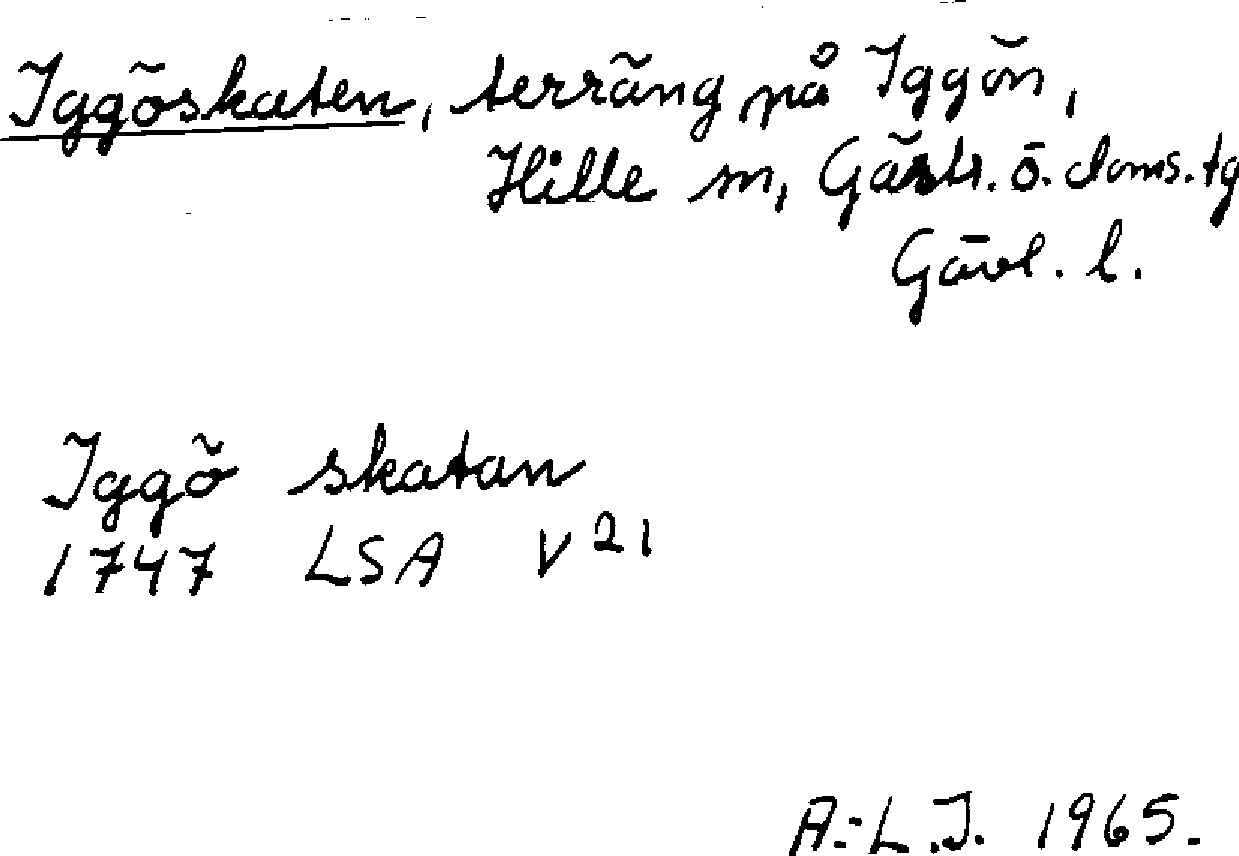 Iggöskaten, terräng på Iggön,
Hille sn, Gästr. ö. doms.tg
Gävl. l.
Iggö skatan
1747 LSA V 21
A.-L.J. 1965.